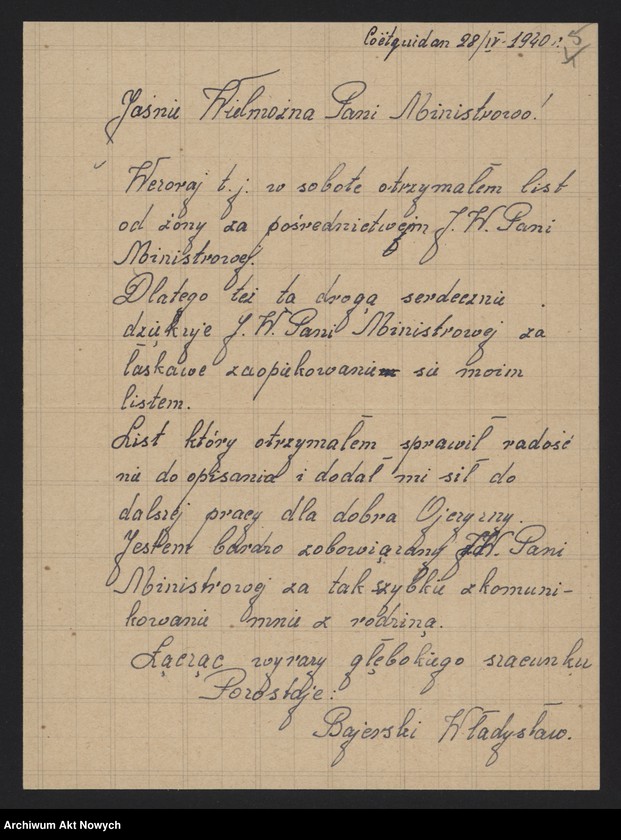 Coëtquidan 28/IV-1940 r.
Jaśnie Wielmożna Pani Ministrowo!
Wczoraj t.j. w sobote otrzymałem list
od żony za pośrednictwem J.W. Pani
Ministrowej.
Dlatego też tą drogą serdecznie
dziękuje J.W. Pani Ministrowej za
łaskawe zaopiekowanie sie moim
listem.
List który otrzymałem sprawił radość
nie do opisania i dodał mi sił do
dalszej pracy dla dobra Ojczyzny.
Jestem bardzo zobowiązany J.W. Pani
Ministrowej za tak szybkie zkomuni-
kowanie mnie z rodziną.
Łącząc wyrazy głębokiego szacunku
Pozostaje:
Bajerski Władysław.
Archiwum Akt Nowych